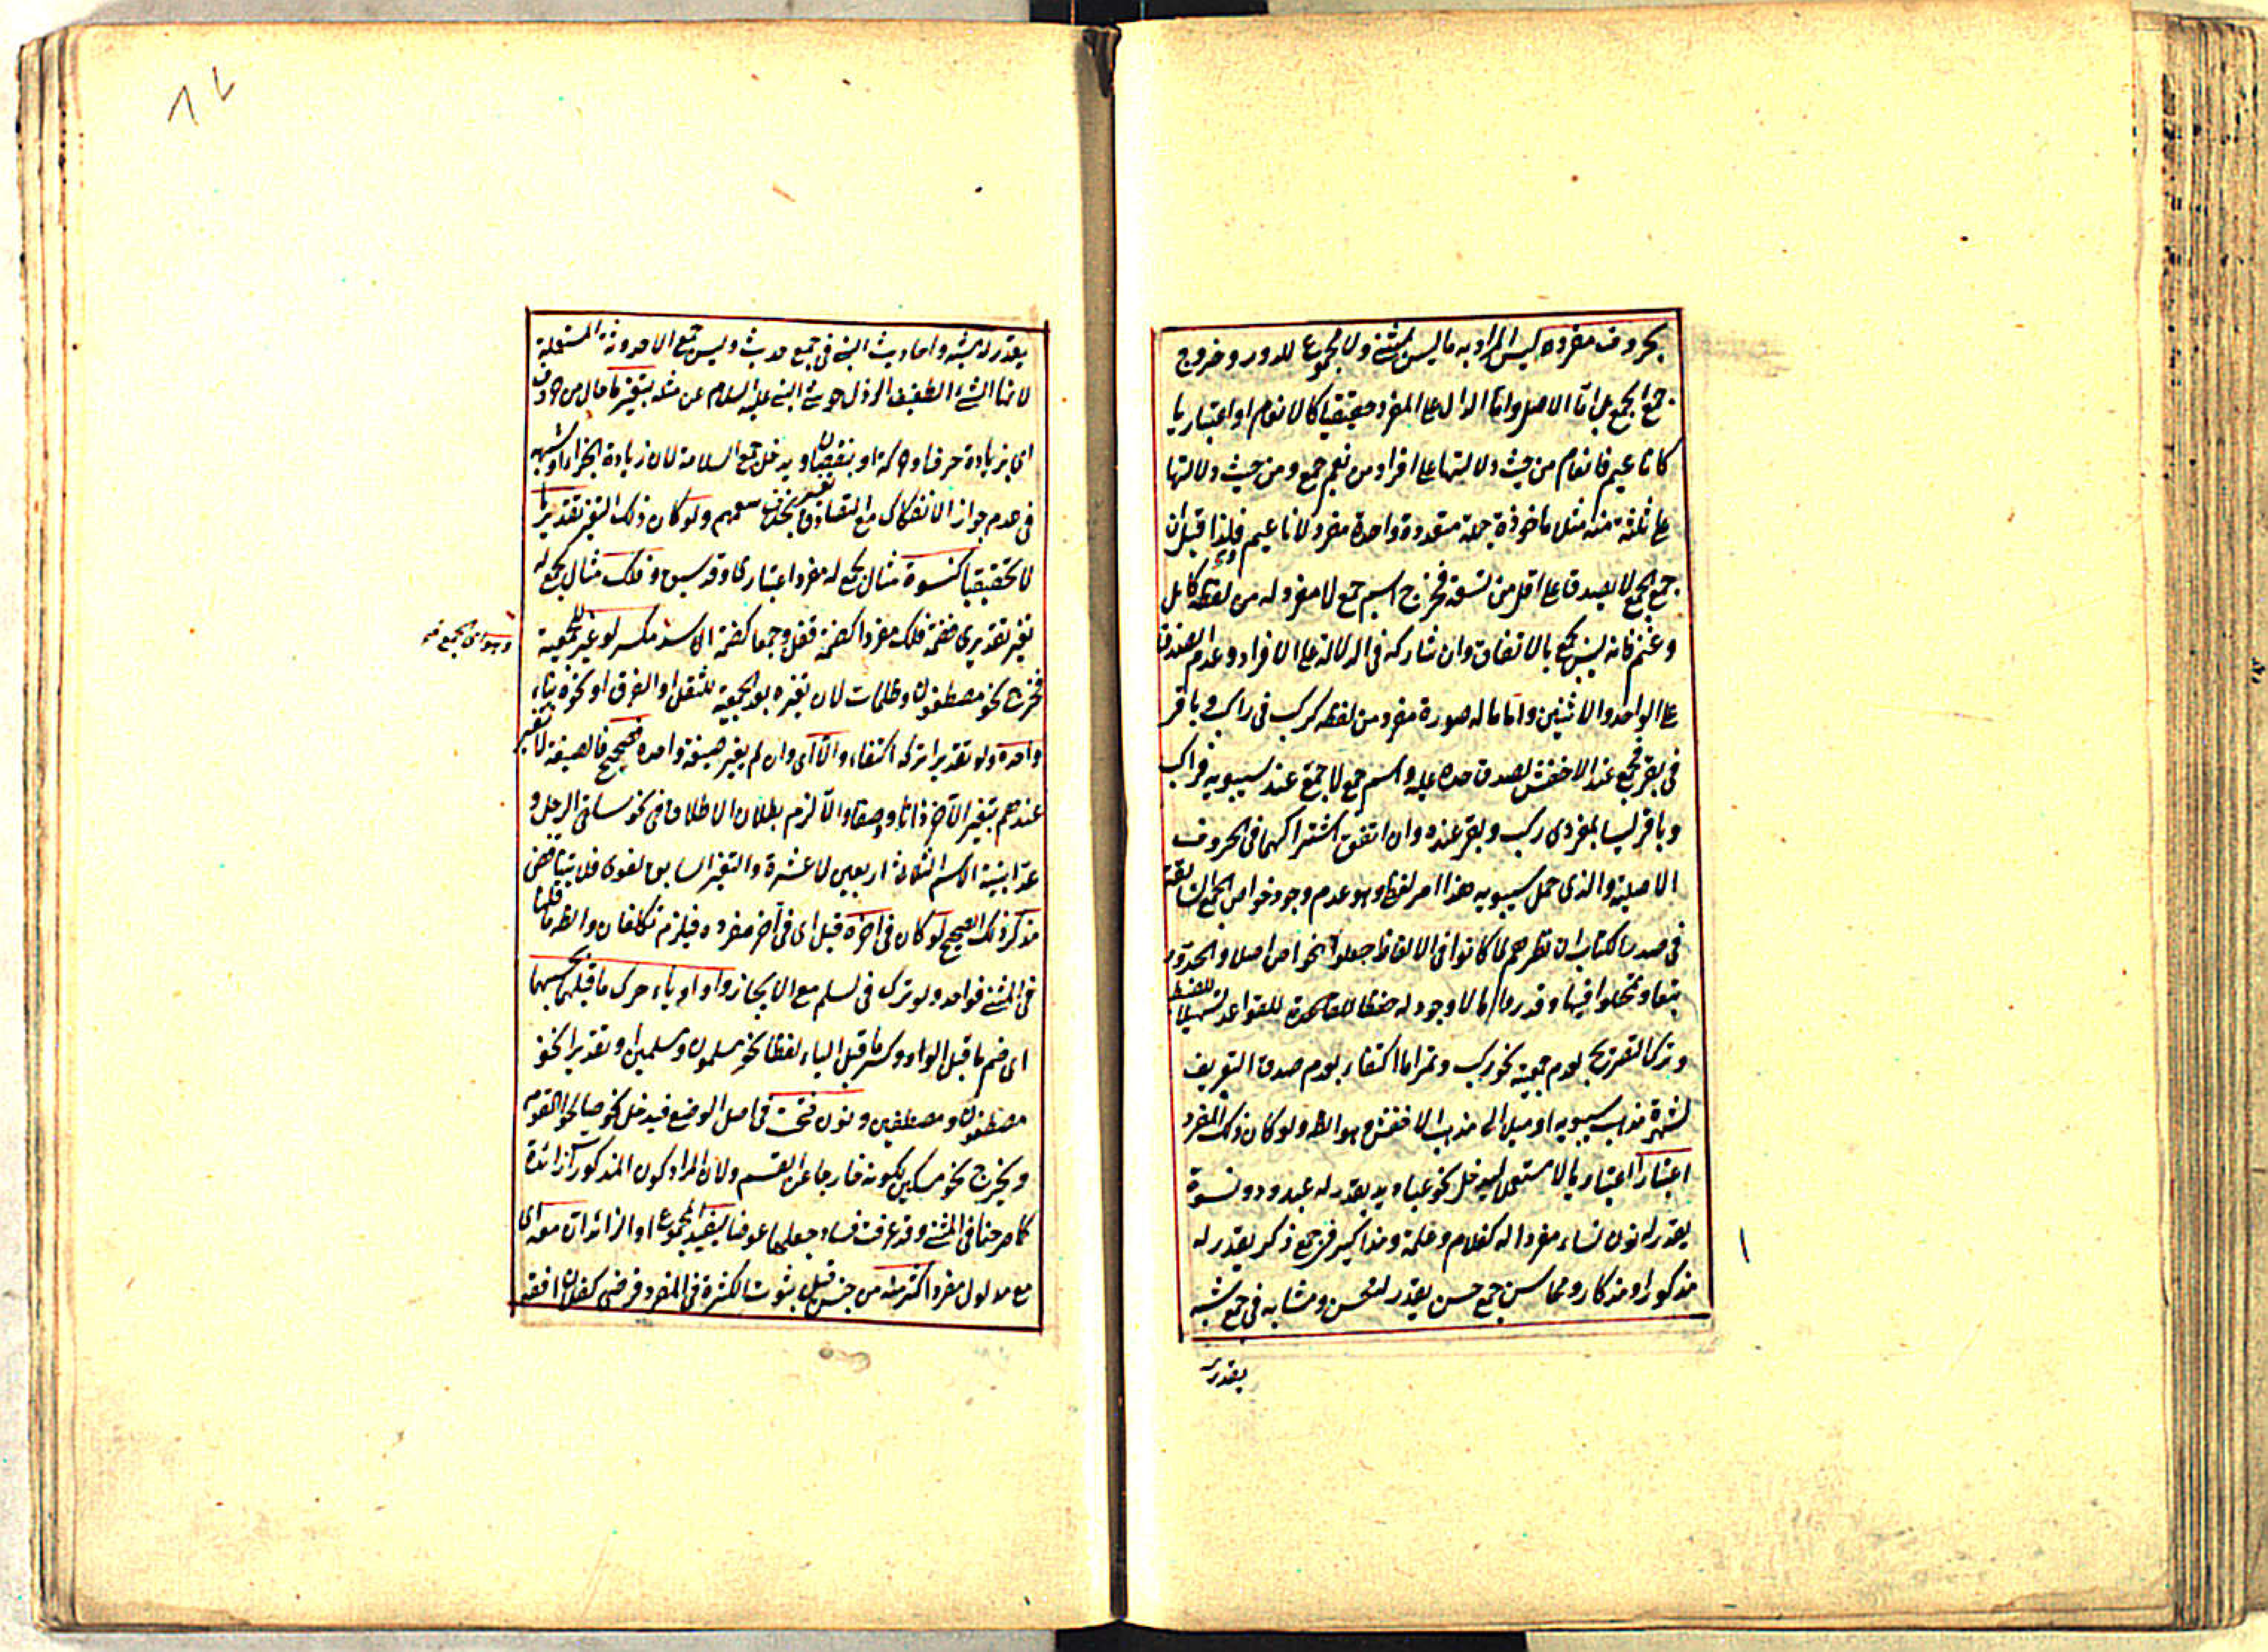 بحروف مفرده ليس المراد به ما ليس بمثنى ولا مجموع للدور وخروج
جمع الجمع بل اما الاصل واما الدال على المفرد حقيقيا كالانعام او اعتباريا
كاناعيم فانعام من حيث دلالتها على افراد من نعم جمع ومن حيث دلالتها
على ثلثة منه مثل ماخوذة جملة متعددة واحدة مفرد لاناعيم فلذا قيل ان
جمع الجمع لا يصدق على اقل من تسعة فخرج اسم جمع لا مفرد له من لفظه كابل
وغنم فانه ليس بجمع بالاتفاق وان شاركه في الدلالة على الافراد وعدم الصدق
على الواحد والاثنين واما ما له صورة مفرد من لفظه كركب في راكب وباقر
في بقر فجمع عند الاخفش لصدق حده عليه واسم جمع لا جمع عند سيبويه فراكب
وباقر ليسا بمفردى ركب وبقر عنده وان اتفق اشتراكهما في الحروف
الاصلية والذى حمل سيبويه هذا امر لفظى وهو عدم وجود خواص الجمع السابقة
في صدر الكتاب ان نظرهم لما كانوا في الالفاظ جعلوا الخواص اصلا والحدود
تبعا وتمحلوا فيها وقدروا ما لا وجود له حفظا للقاعدة للقواعد تسهيلا للضبط
وترك التصريح بعدم جمعية نحو ركب وتمر اما اكتفاء بعدم صدق التعريف
لشهرة مذهب سيبويه او ميل الى مذهب الاخفش وهو الظ ولو كان ذلك المفرد
اعتبارا اعتباريا لا مستعملا ليدخل نحو عباديد يقدر له عبدود ونسوة
يقدر له نون نساء مفردا له كغلام وغلمة ومذاكير في جمع ذكر يقدر له
مذكورا ومذكار ومحاسن جمع حسن يقدر لمحسن ومشابه في جمع شبه
يقدر له
يقدر له مشبه واحاديث النبي في جمع حديث وليس جمع الاحدوثة المستعملة
لانها الشئ الطفيف الرذل حوشى النبي عليه السلام عن مثله بتغير ما حال من حروف
اى بزيادة حرف او حركة او بنقصان ويدخل جمع السلامة لان زيادة الجزء او شبهه
في عدم جواز الانفكاك مع التصادق تغير بخلاف معهم ولو كان ذلك التغير تقديريا
لا تحقيقيا كنسوة مثال لجمع له مفرد اعتبارى وقد سبق وفلك مثال لجمع له
تغير تقديرى فضمة فلك مفردا كضمة قفل وجمعا كضمة اسد مكسر لو غير للجمعية
فخرج نحو مصطفون وظلمات لان تغيره بعد الجمعية للثقل او الفرق او نحوه بناء
واحده ولو تقديرا تركه اكتفاء والا اى وان لم يغير صيغة واحده فصحيح فالصيغة لا تتغير
عندهم بتغير الآخر ذاتا وصفا والا لزم بطلان الاطلاق في نحو
عد ابنية الاسم الثلاثة اربعين لا عشرة والتغير السابق لغوى فلا يتناقض
مذكر ذلك الصحيح لو كان في آخره قيل اى في آخر مفرده فيلزم تكلفان والظ ما قلنا
في المثنى فواحد ولو ترك في لسلم مع الايجاز واو او ياء حرك ما قبلهما بحسبهما
اى ضم ما قبل الواو وكسر ما قبل الياء لفظا نحو مسلمون ومسلمين او تقديرا نحو
مصطفون ومصطفين ونون فتحت في اصل الوضع فيدخل نحو صالحوا القوم
ويخرج نحو مسكين لكونه خارجا عن القسم ولان المراد كون المذكور زائدة
كما صرحنا في المثنى وقد عرفت فساد جعلها عوضا ليفيد المجموع او الزائدان معه اى
مع مدلول مفرد اكثر منه من جنس قيل ثبوت الكثرة في المفرد فرضى كفلان افقه
وهو اى الجمع